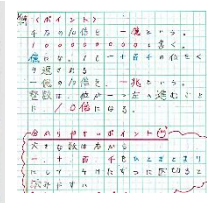 〈ポイント〉
千万の10倍を 一億という。
100000000と書く。
億になっても一十百千の位をく
り返される
一億の10倍を、一兆という。
整数は、位が一つ左へ進むごと
に、10倍になる。
大きな数は右から
一、十、百、千をひとまとまり
にして、4けたずつに区切ると
読みやすい